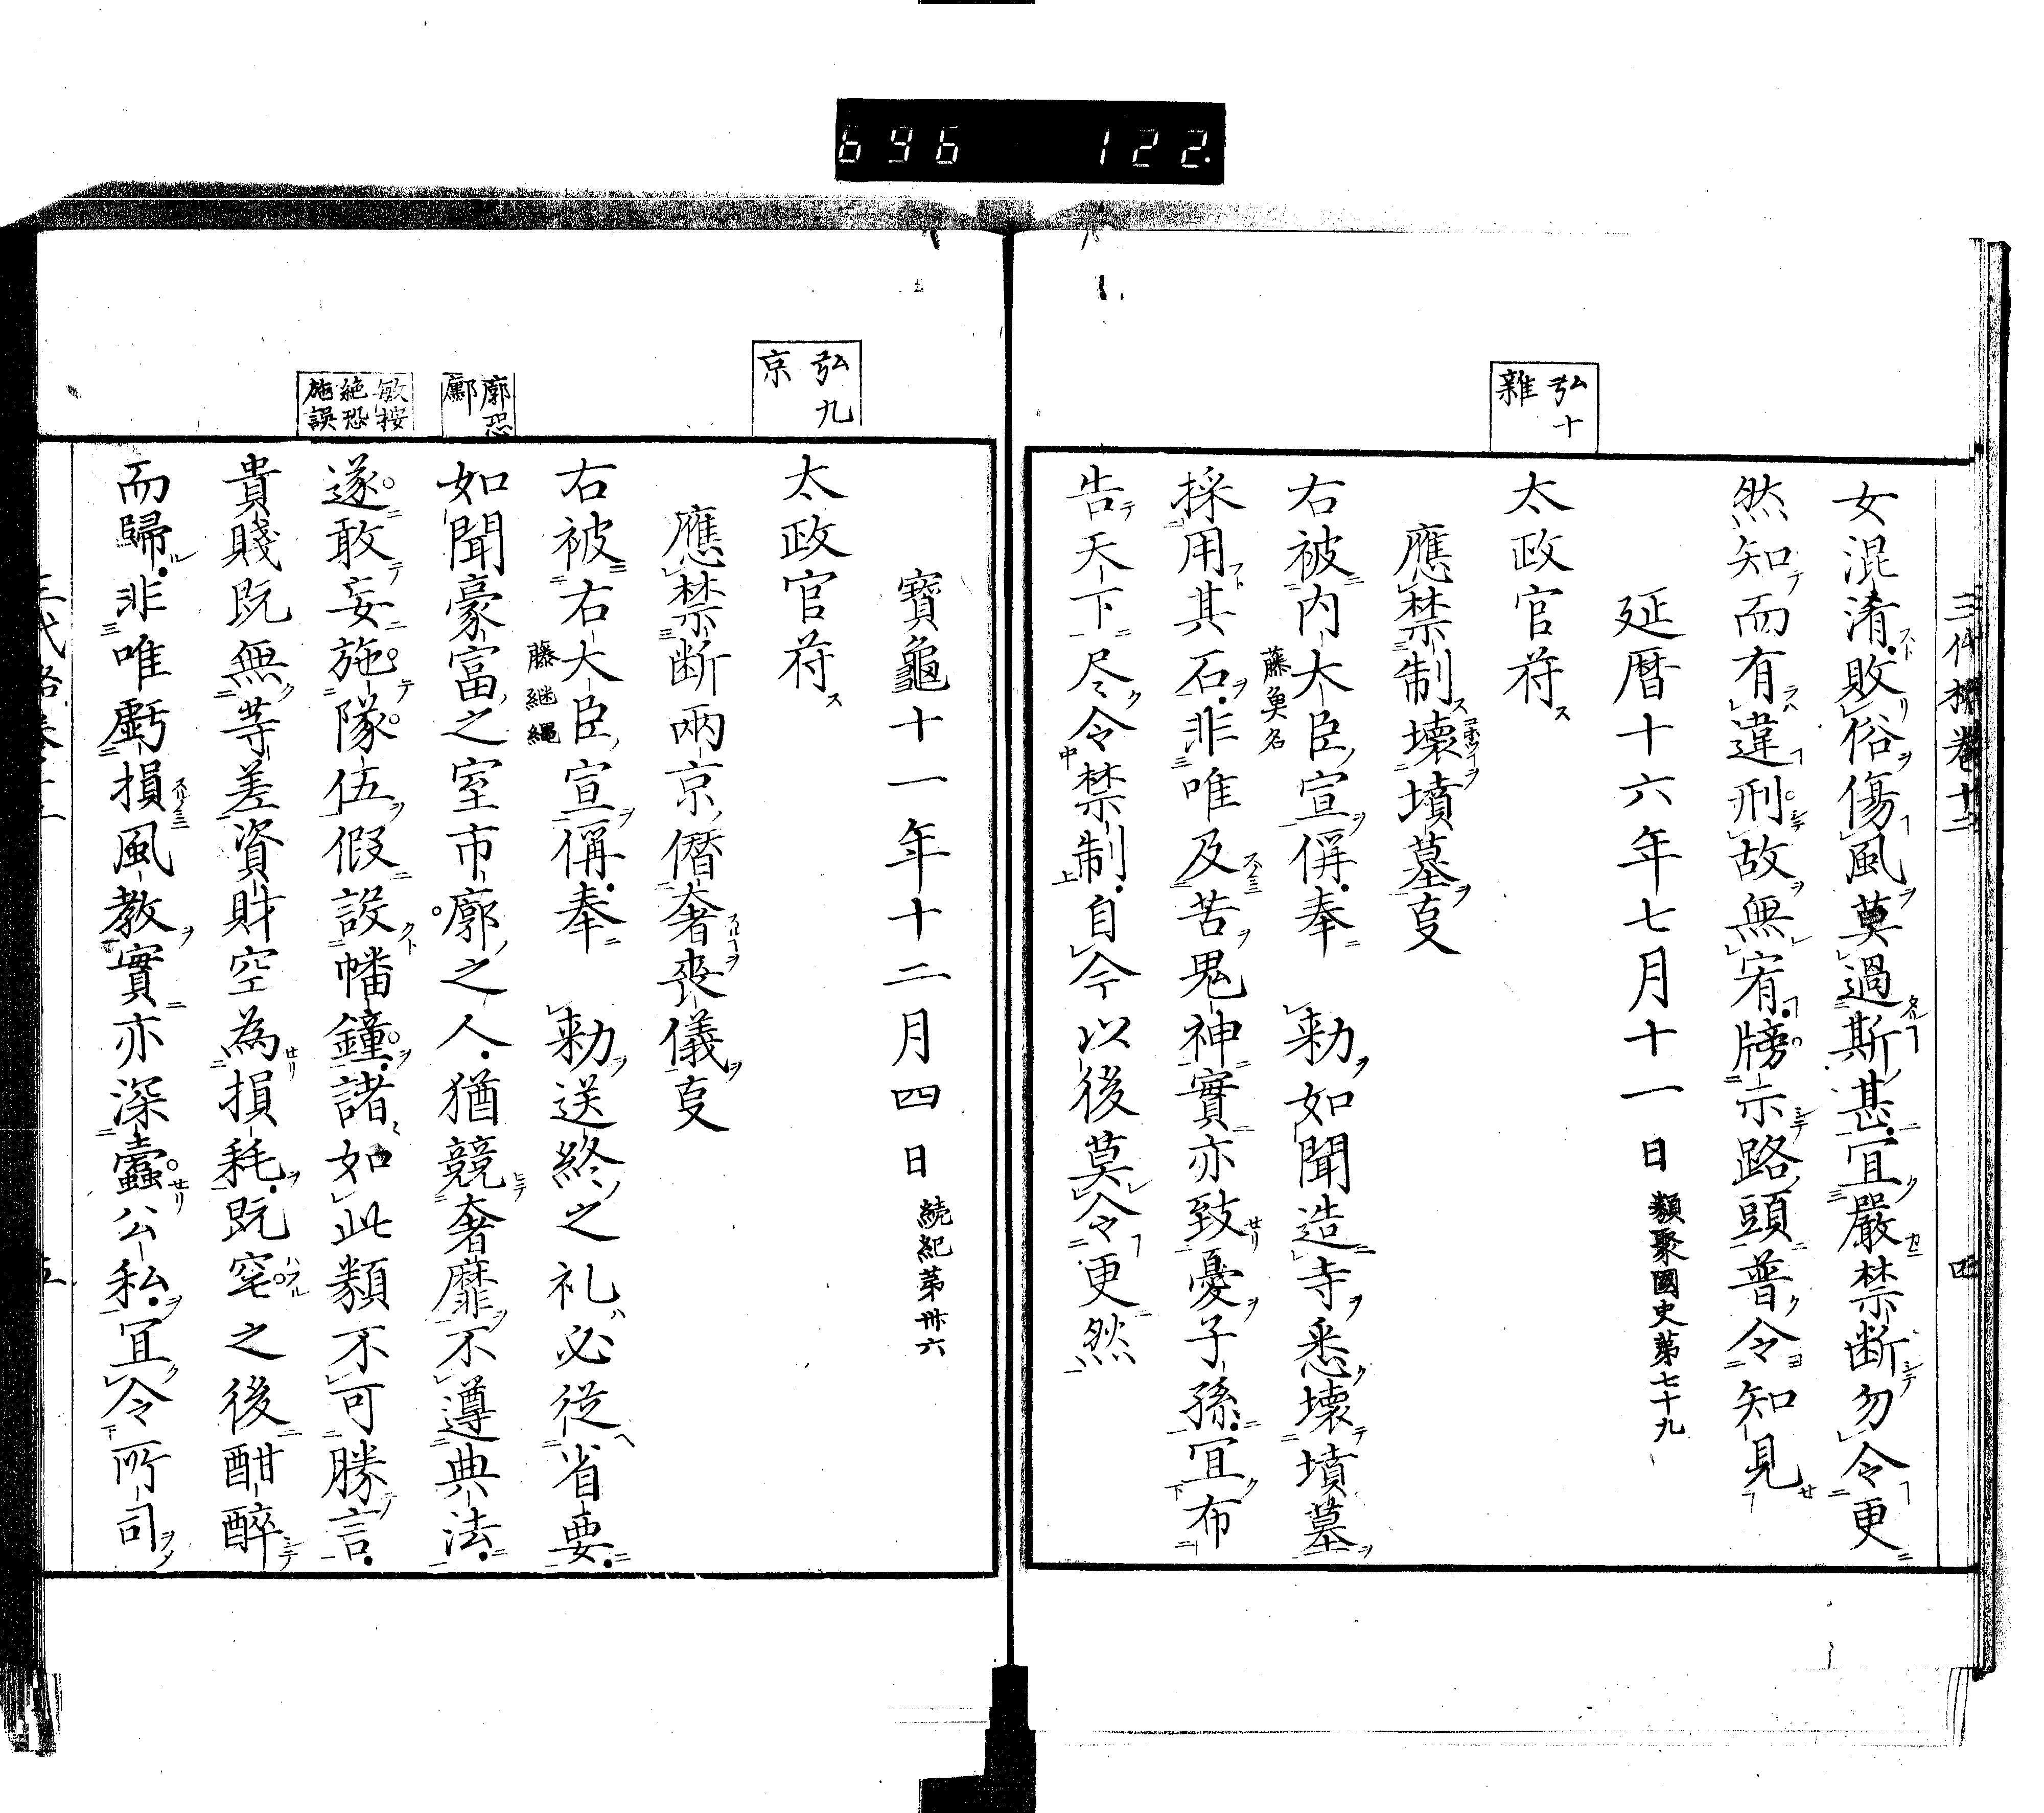 696 122.
三代格巻十二
四
女混淆敗俗傷風莫過斯甚冝嚴禁断勿令更
然知而有違刑故無宥牓示路頭普令知見
延暦十六年七月十一日 類聚國史第七十九
弘十
雜
太政官符ス
應禁制壞墳墓㕝
右被内大臣宣偁奉　勅如聞造寺悉壊墳墓
藤魚名
採用其石非唯及苦鬼神實亦致憂子孫冝布
告天下尽令禁制自今以後莫令更然
寳龜十一年十二月四日 続紀第卅六
弘九
京
太政官符ス
應禁断兩京僭奢喪儀㕝
右被右大臣宣偁奉　勅送終之礼必従省要
藤継縄
廓恐
鄽
如聞豪富之室市廓之人猶競奢靡不遵典法
敏按
絁恐
施誤
遂敢妄施隊伍假設幡鐘諸如此類不可勝言
貴賤既無等差資財空為損耗既窆之後酣醉
而歸非唯虧損風教實亦深蠹公私冝令所司
三代格巻十二
五